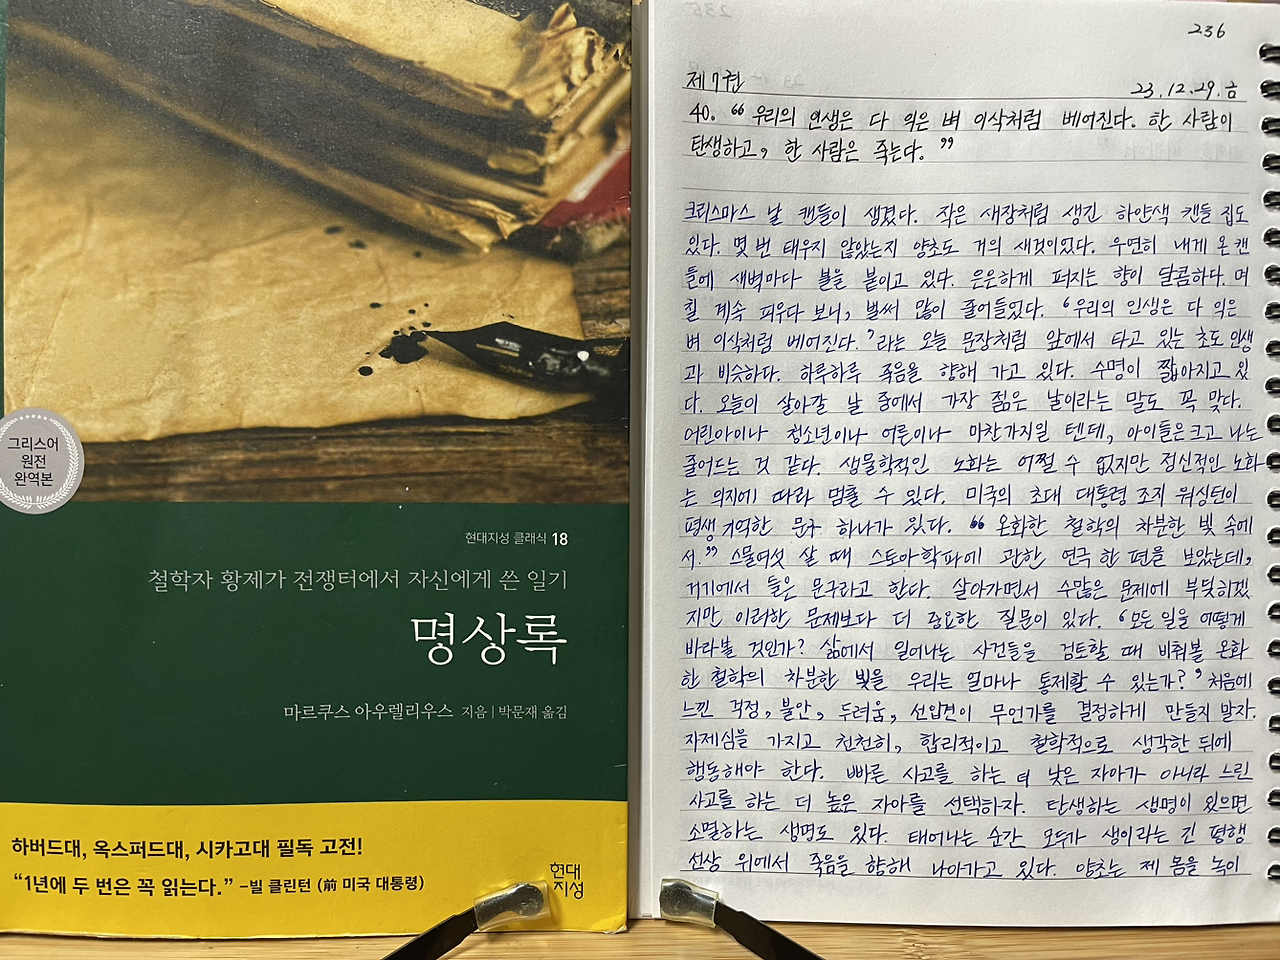 그리스어
원전
완역본
현대지성 클래식 18
철학자 황제가 전쟁터에서 자신에게 쓴 일기
명상록
마르쿠스 아우렐리우스 지음 | 박문재 옮김
하버드대, 옥스퍼드대, 시카고대 필독 고전!
“1년에 두 번은 꼭 읽는다.” –빌 클린턴 (前 미국 대통령)
현대
지성
236
제7권 23.12.29.금
40. “우리의 인생은 다 익은 벼 이삭처럼 베어진다. 한 사람이
탄생하고, 한 사람은 죽는다.”
크리스마스 날 캔들이 생겼다. 작은 새장처럼 생긴 하얀색 캔들 집도
있다. 몇 번 태우지 않았는지 양초도 거의 새것이었다. 우연히 내게 온 캔
들에 새벽마다 불을 붙이고 있다. 은은하게 퍼지는 향이 달콤하다. 며
칠 계속 피우다 보니, 벌써 많이 줄어들었다. ‘우리의 인생은 다 익은
벼 이삭처럼 베어진다.’라는 오늘 문장처럼 앞에서 타고 있는 초도 인생
과 비슷하다. 하루하루 죽음을 향해 가고 있다. 수명이 짧아지고 있
다. 오늘이 살아갈 날 중에서 가장 젊은 날이라는 말도 꼭 맞다.
어린아이나 청소년이나 어른이나 마찬가지일 텐데, 아이들은 크고 나는
줄어드는 것 같다. 생물학적인 노화는 어쩔 수 없지만 정신적인 노화
는 의지에 따라 멈출 수 있다. 미국의 초대 대통령 조지 워싱턴이
평생 기억한 문구 하나가 있다. “온화한 철학의 차분한 빛 속에
서.” 스물여섯 살 때 스토아학파에 관한 연극 한 편을 보았는데,
거기에서 들은 문구라고 한다. 살아가면서 수많은 문제에 부딪히겠
지만 이러한 문제보다 더 중요한 질문이 있다. ‘모든 일을 어떻게
바라볼 것인가? 삶에서 일어나는 사건들을 검토할 때 비춰볼 온화
한 철학의 차분한 빛을 우리는 얼마나 통제할 수 있는가?’ 처음에
느낀 걱정, 불안, 두려움, 선입견이 무언가를 결정하게 만들지 말자.
자제심을 가지고 천천히, 합리적이고 철학적으로 생각한 뒤에
행동해야 한다. 빠른 사고를 하는 더 낮은 자아가 아니라 느린
사고를 하는 더 높은 자아를 선택하자. 탄생하는 생명이 있으면
소멸하는 생명도 있다. 태어나는 순간 모두가 생이라는 긴 평행
선상 위에서 죽음을 향해 나아가고 있다. 양초는 제 몸을 녹이